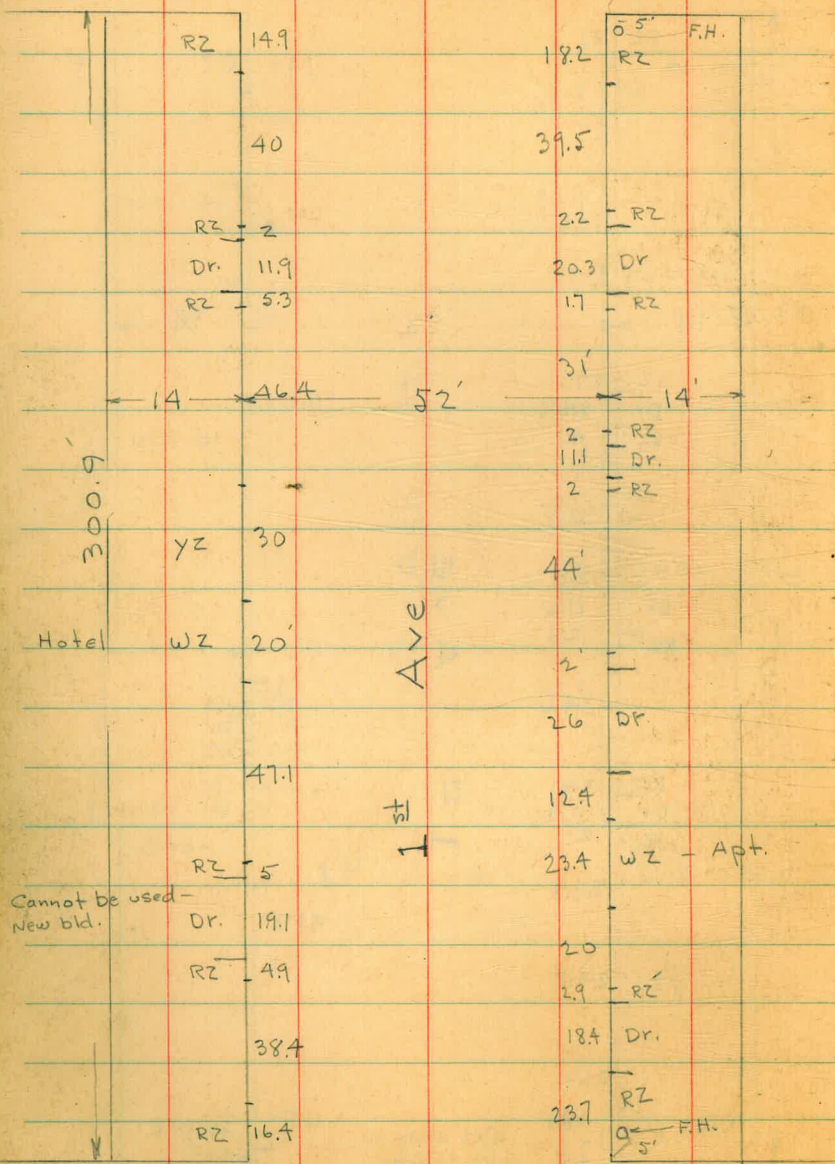 RZ 14.9
40
RZ 2
Dr. 11.9
RZ 5.3
14 46.4
300.9'
YZ 30
Hotel WZ 20'
47.1
RZ 5
Cannot be used -
New bld.
Dr. 19.1
RZ 4.9
38.4
RZ 16.4
52'
1st Ave
5' F.H.
18.2 RZ
39.5
2.2 RZ
20.3 Dr
1.7 RZ
31'
14'
2 RZ
11.1 Dr.
2 RZ
44'
2'
26 Dr.
12.4
23.4 WZ - Apt.
20
2.9 RZ
18.4 Dr.
23.7 RZ
F.H.
5'